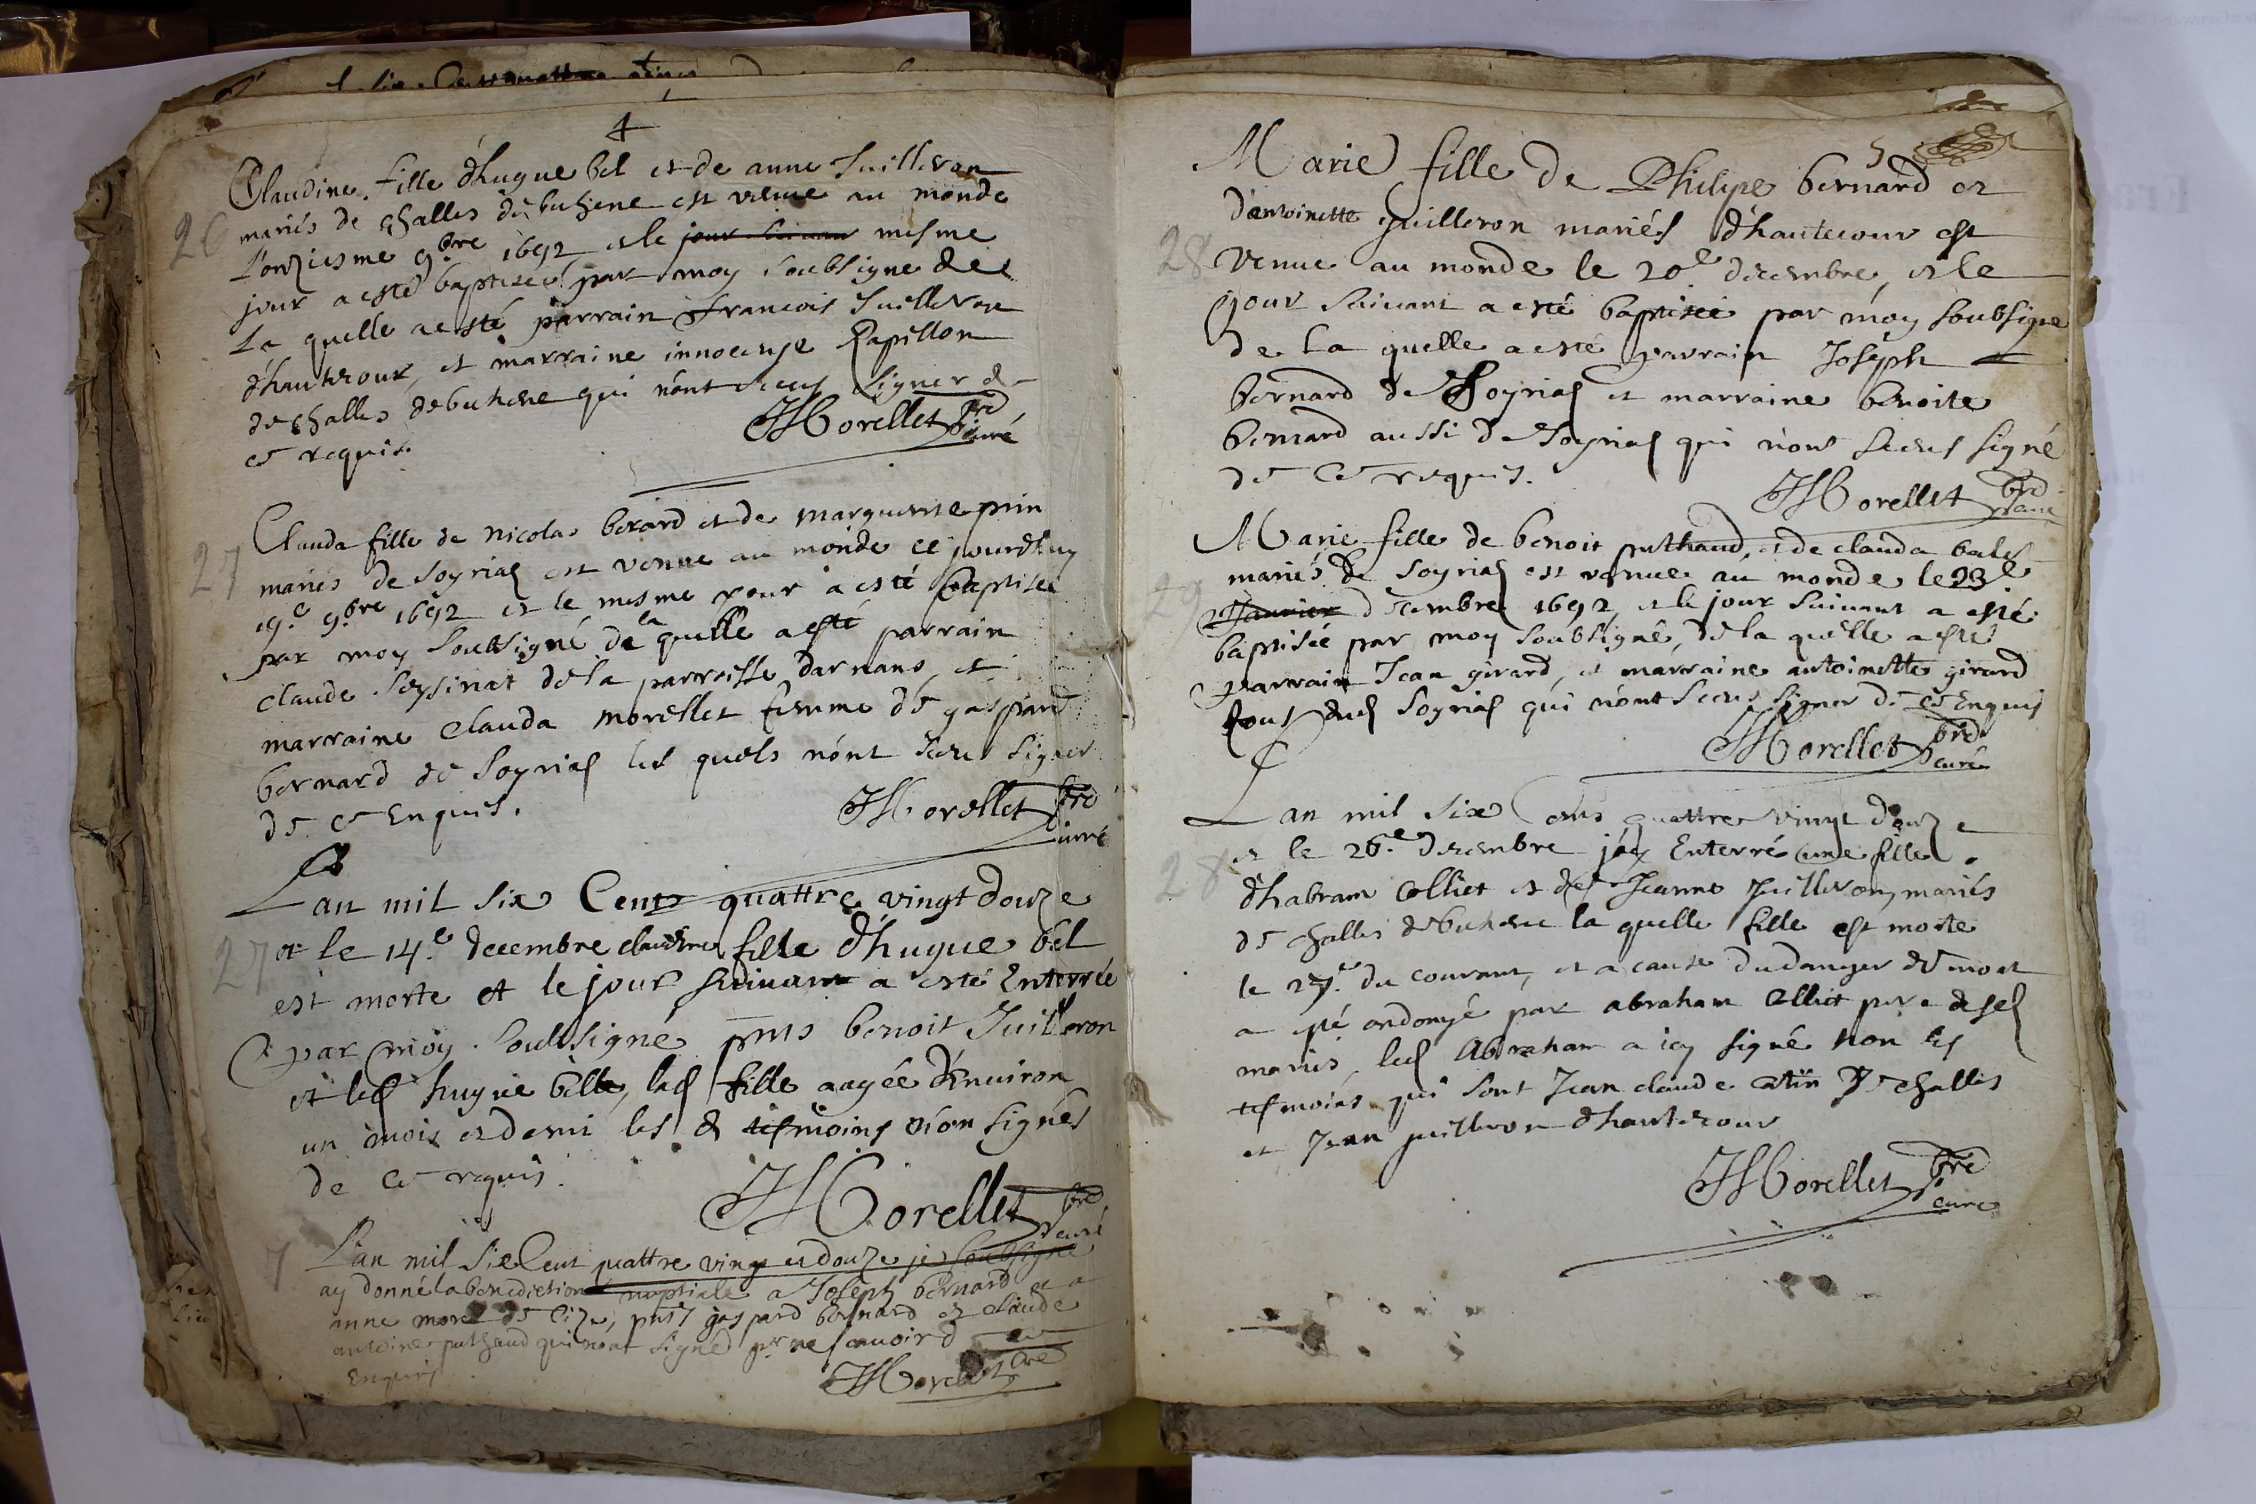 4
Claudine fille d'hugue bel et de anne Juilleron
26
mariés de challes de buhene est venue au monde
L'onziesme 9bre 1692 et le jour suivant mesme
jour a esté baptisée par moy soubsigne de
la quelle a esté parrain francois Juilleron
d'hautecour, et marraine innocense Papillon
de challes de buhene qui n'ont sceus signer de
ce requis.
JMorellet pbre curé
27
Clauda fille de nicolas berard et de marguerite prin
mariés de soyria est venue au monde ce jourdhuy
19e 9bre 1692 et le mesme jour a esté baptisée
par moy soubsigné de la quelle a esté parrain
claude seysinat de la parroisse darnans, et
marraine clauda morellet femme de gaspard
bernard de soyria les quels n'ont sceus signer
de ce enquis.
JMorellet pbre curé
L'an mil six Cents quattre vingt douze
27
et le 14e decembre claudine fille d'hugue bel
est morte et le jour suivant a esté Enterrée
par moy soubsigné pnts benoit Juilleron
et led hugue bell, lad fille aagée d'Environ
un mois et demi les d tesmoins n'on signés
de ce requis.
JMorellet pbre curé
7
L'an mil six Cent quattre vingt et douze je soubsigné
ay donné la benediction nuptiale a Joseph bernard et a
anne morel de Cize, pnts gaspard bernard et claude
antoine puthaud qui n'ont signé pr ne scauoir de ce
Enquis
JMorellet pbre
5
Marie fille de Philype bernard et
d'antoinette Juilleron mariés d'hautecour est
28
venue au monde le 20e decembre, et le
jour suivant a esté baptisée par moy soubsigne
de la quelle a esté parrain Joseph
bernard de Soyria et marraine benoite
bernard aussi de Soyria qui n'ont sceus signé
de ce requis.
JMorellet pbre curé
Marie fille de benoit puthaud, et de clauda bales
mariés de soyria est venue au monde le 23e
29
Janvier decembre 1692 et le jour suivant a esté
baptisée par moy soubsigné, de la quelle a esté
parrain Jean girard, et marraine antoinette girard
tous dud soyria qui n'ont sceus signer de ce Enquis
JMorellet pbre curé
L'an mil six Cents quattre vingt douze
et le 26e decembre j'ay Enterré une fille
28
d'habram Colliet et de Jeanne Juilleron, mariés
de challes de buhene la quelle fille est morte
le 25e du courant, et a cause du danger de mort
a esté ondoyé par abraham Colliet pere desd
mariés, led Abraham a icy signé non les
tesmoins qui sont Jean claude catin de challes
et Jean juilleron d'hautecour
JMorellet pbre curé